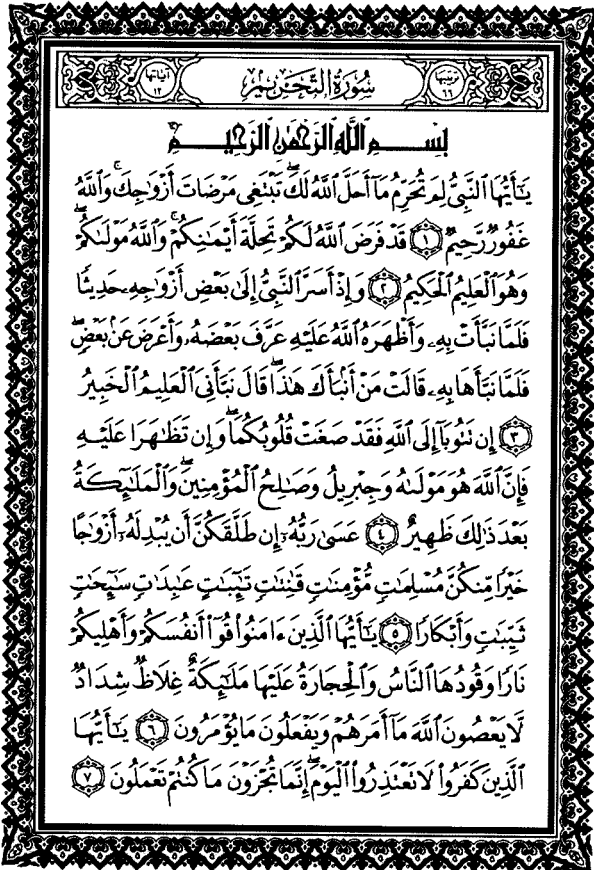 ترتيبها ٦٦
سُورَةُ التَّحْرِيمِ
آياتها ١٢
بِسْمِ ٱللَّهِ ٱلرَّحْمَٰنِ ٱلرَّحِيمِ
يَٰٓأَيُّهَا ٱلنَّبِىُّ لِمَ تُحَرِّمُ مَآ أَحَلَّ ٱللَّهُ لَكَۖ تَبْتَغِى مَرْضَاتَ أَزْوَٰجِكَۚ وَٱللَّهُ
غَفُورٌ رَّحِيمٌ ١ قَدْ فَرَضَ ٱللَّهُ لَكُمْ تَحِلَّةَ أَيْمَٰنِكُمْۚ وَٱللَّهُ مَوْلَىٰكُمْۖ
وَهُوَ ٱلْعَلِيمُ ٱلْحَكِيمُ ٢ وَإِذْ أَسَرَّ ٱلنَّبِىُّ إِلَىٰ بَعْضِ أَزْوَٰجِهِۦ حَدِيثًا
فَلَمَّا نَبَّأَتْ بِهِۦ وَأَظْهَرَهُ ٱللَّهُ عَلَيْهِ عَرَّفَ بَعْضَهُۥ وَأَعْرَضَ عَنۢ بَعْضٍۖ
فَلَمَّا نَبَّأَهَا بِهِۦ قَالَتْ مَنْ أَنۢبَأَكَ هَٰذَاۖ قَالَ نَبَّأَنِىَ ٱلْعَلِيمُ ٱلْخَبِيرُ
٣ إِن تَتُوبَآ إِلَى ٱللَّهِ فَقَدْ صَغَتْ قُلُوبُكُمَاۖ وَإِن تَظَٰهَرَا عَلَيْهِ
فَإِنَّ ٱللَّهَ هُوَ مَوْلَىٰهُ وَجِبْرِيلُ وَصَٰلِحُ ٱلْمُؤْمِنِينَۖ وَٱلْمَلَٰٓئِكَةُ
بَعْدَ ذَٰلِكَ ظَهِيرٌ ٤ عَسَىٰ رَبُّهُۥٓ إِن طَلَّقَكُنَّ أَن يُبْدِلَهُۥٓ أَزْوَٰجًا
خَيْرًا مِّنكُنَّ مُسْلِمَٰتٍ مُّؤْمِنَٰتٍ قَٰنِتَٰتٍ تَٰٓئِبَٰتٍ عَٰبِدَٰتٍ سَٰٓئِحَٰتٍ
ثَيِّبَٰتٍ وَأَبْكَارًا ٥ يَٰٓأَيُّهَا ٱلَّذِينَ ءَامَنُوا۟ قُوٓا۟ أَنفُسَكُمْ وَأَهْلِيكُمْ
نَارًا وَقُودُهَا ٱلنَّاسُ وَٱلْحِجَارَةُ عَلَيْهَا مَلَٰٓئِكَةٌ غِلَاظٌ شِدَادٌ
لَّا يَعْصُونَ ٱللَّهَ مَآ أَمَرَهُمْ وَيَفْعَلُونَ مَا يُؤْمَرُونَ ٦ يَٰٓأَيُّهَا
ٱلَّذِينَ كَفَرُوا۟ لَا تَعْتَذِرُوا۟ ٱلْيَوْمَۖ إِنَّمَا تُجْزَوْنَ مَا كُنتُمْ تَعْمَلُونَ ٧